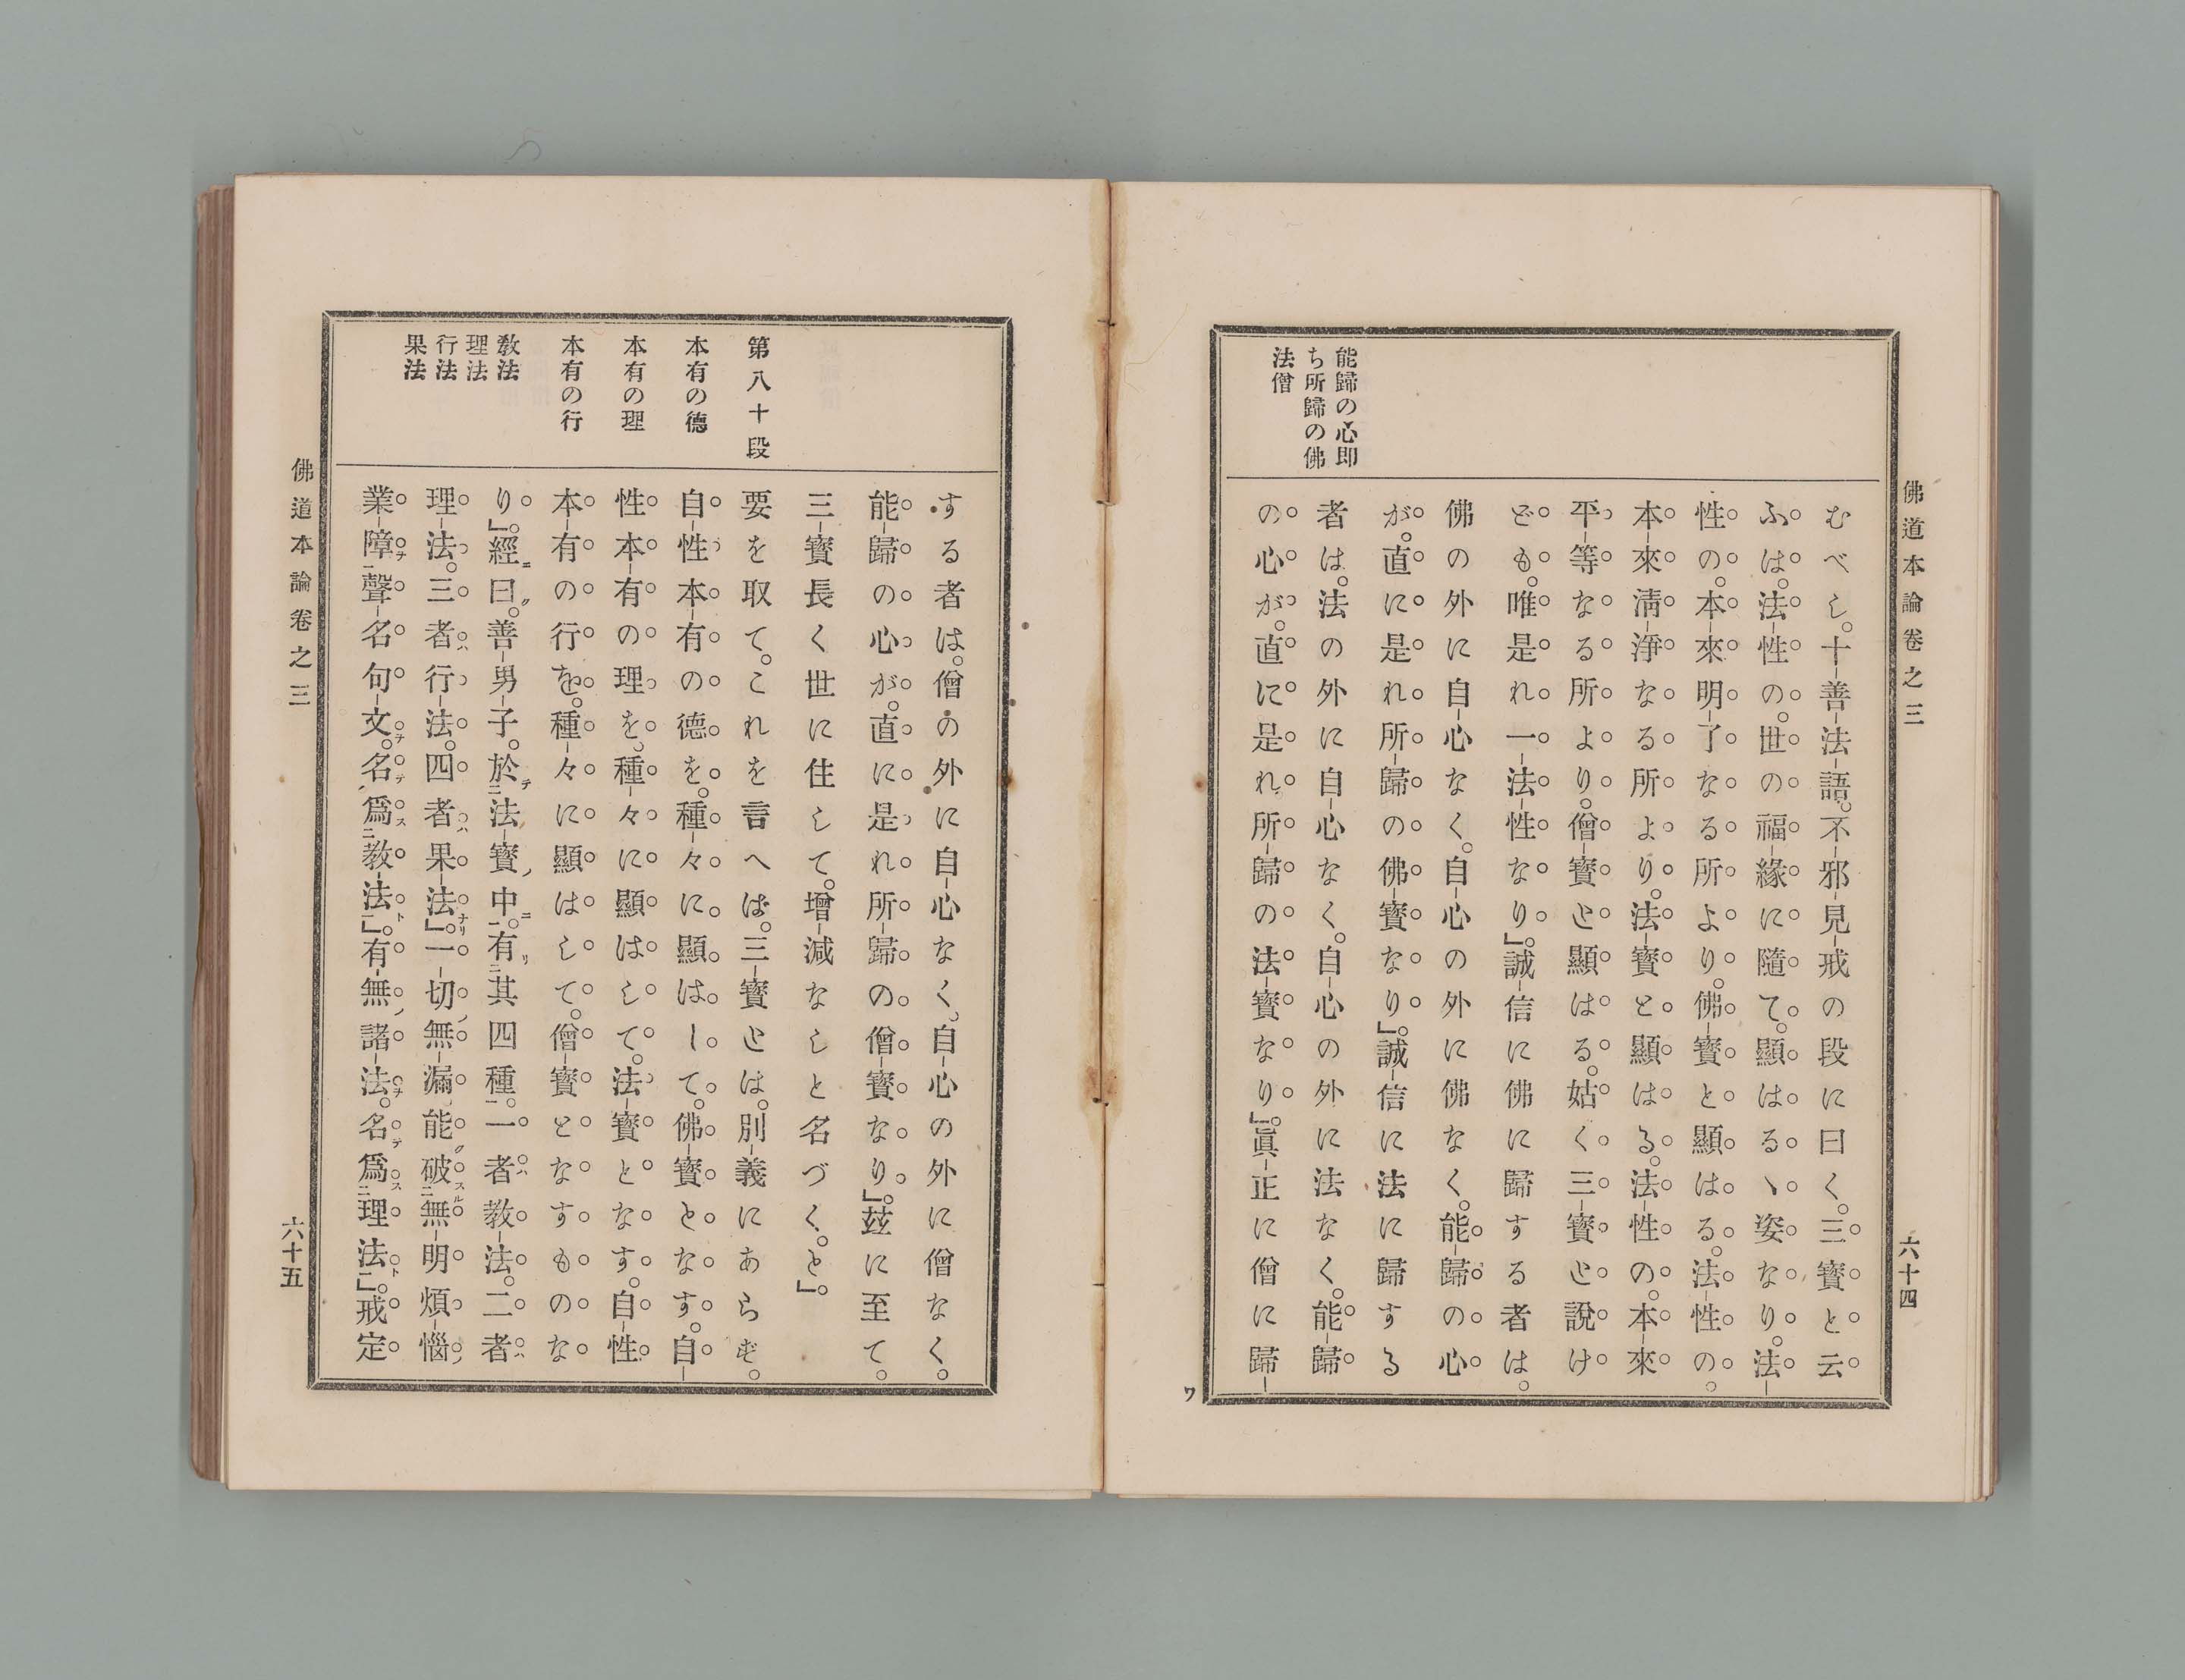 佛道本論卷之三
六十四
能歸の心即
ち所歸の佛
法僧
むべし。十善法語。不邪見戒の段に曰く。三寳と云
ふは。法性の。世の福緣に隨て。顯はるヽ姿なり。法
性の。本來明了なる所より。佛寳と顯はる。法性の。
本來淸淨なる所より。法寳と顯はる。法性の。本來
平等なる所より。僧寳と顯はる。姑く三寳と説け
ども。唯是れ一法性なり」。誠信に佛に歸する者は。
佛の外に自心なく。自心の外に佛なく。能歸の心
が。直に是れ所歸の佛寳なり」。誠信に法に歸する
者は。法の外に自心なく。自心の外に法なく。能歸
の心が。直に是れ所歸の法寳なり」。眞正に僧に歸
ワ
する者は。僧の外に自心なく。自心の外に僧なく。
能歸の心が。直に是れ所歸の僧寳なり」。玆に至て。
三寳長く世に住して。增減なしと名づく。と」。
第八十段
要を取て。これを言へば。三寳とは。別義にあらず。
本有の德
自性本有の德を。種々に顯はして。佛寳となす。自
本有の理
性本有の理を。種々に顯はして。法寳となす。自性
本有の行
本有の行を。種々に顯はして。僧寳となすものな
敎法
理法
行法
果法
り」。經ニ曰ク。善男子。於テ二法寳ノ中ニ一。有リ二其四種一。一者ハ敎法。二者ハ
理法。三者ハ行法。四者ハ果法ナリ」。一切ノ無漏。能ク破スル二無明煩惱ノ
業障ヲ一。聲名句文ヲ。名テ爲ス二敎法ト一」。有無ノ諸法ヲ。名テ爲ス二理法ト一」。戒定
佛道本論卷之三
六十五